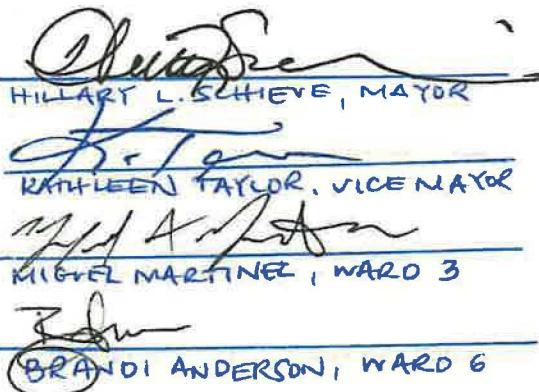 HILLARY L. SCHIEVE, MAYOR
KATHLEEN TAYLOR, VICE MAYOR
MIGUEL MARTINEZ, WARD 3
BRANDI ANDERSON, WARD 6